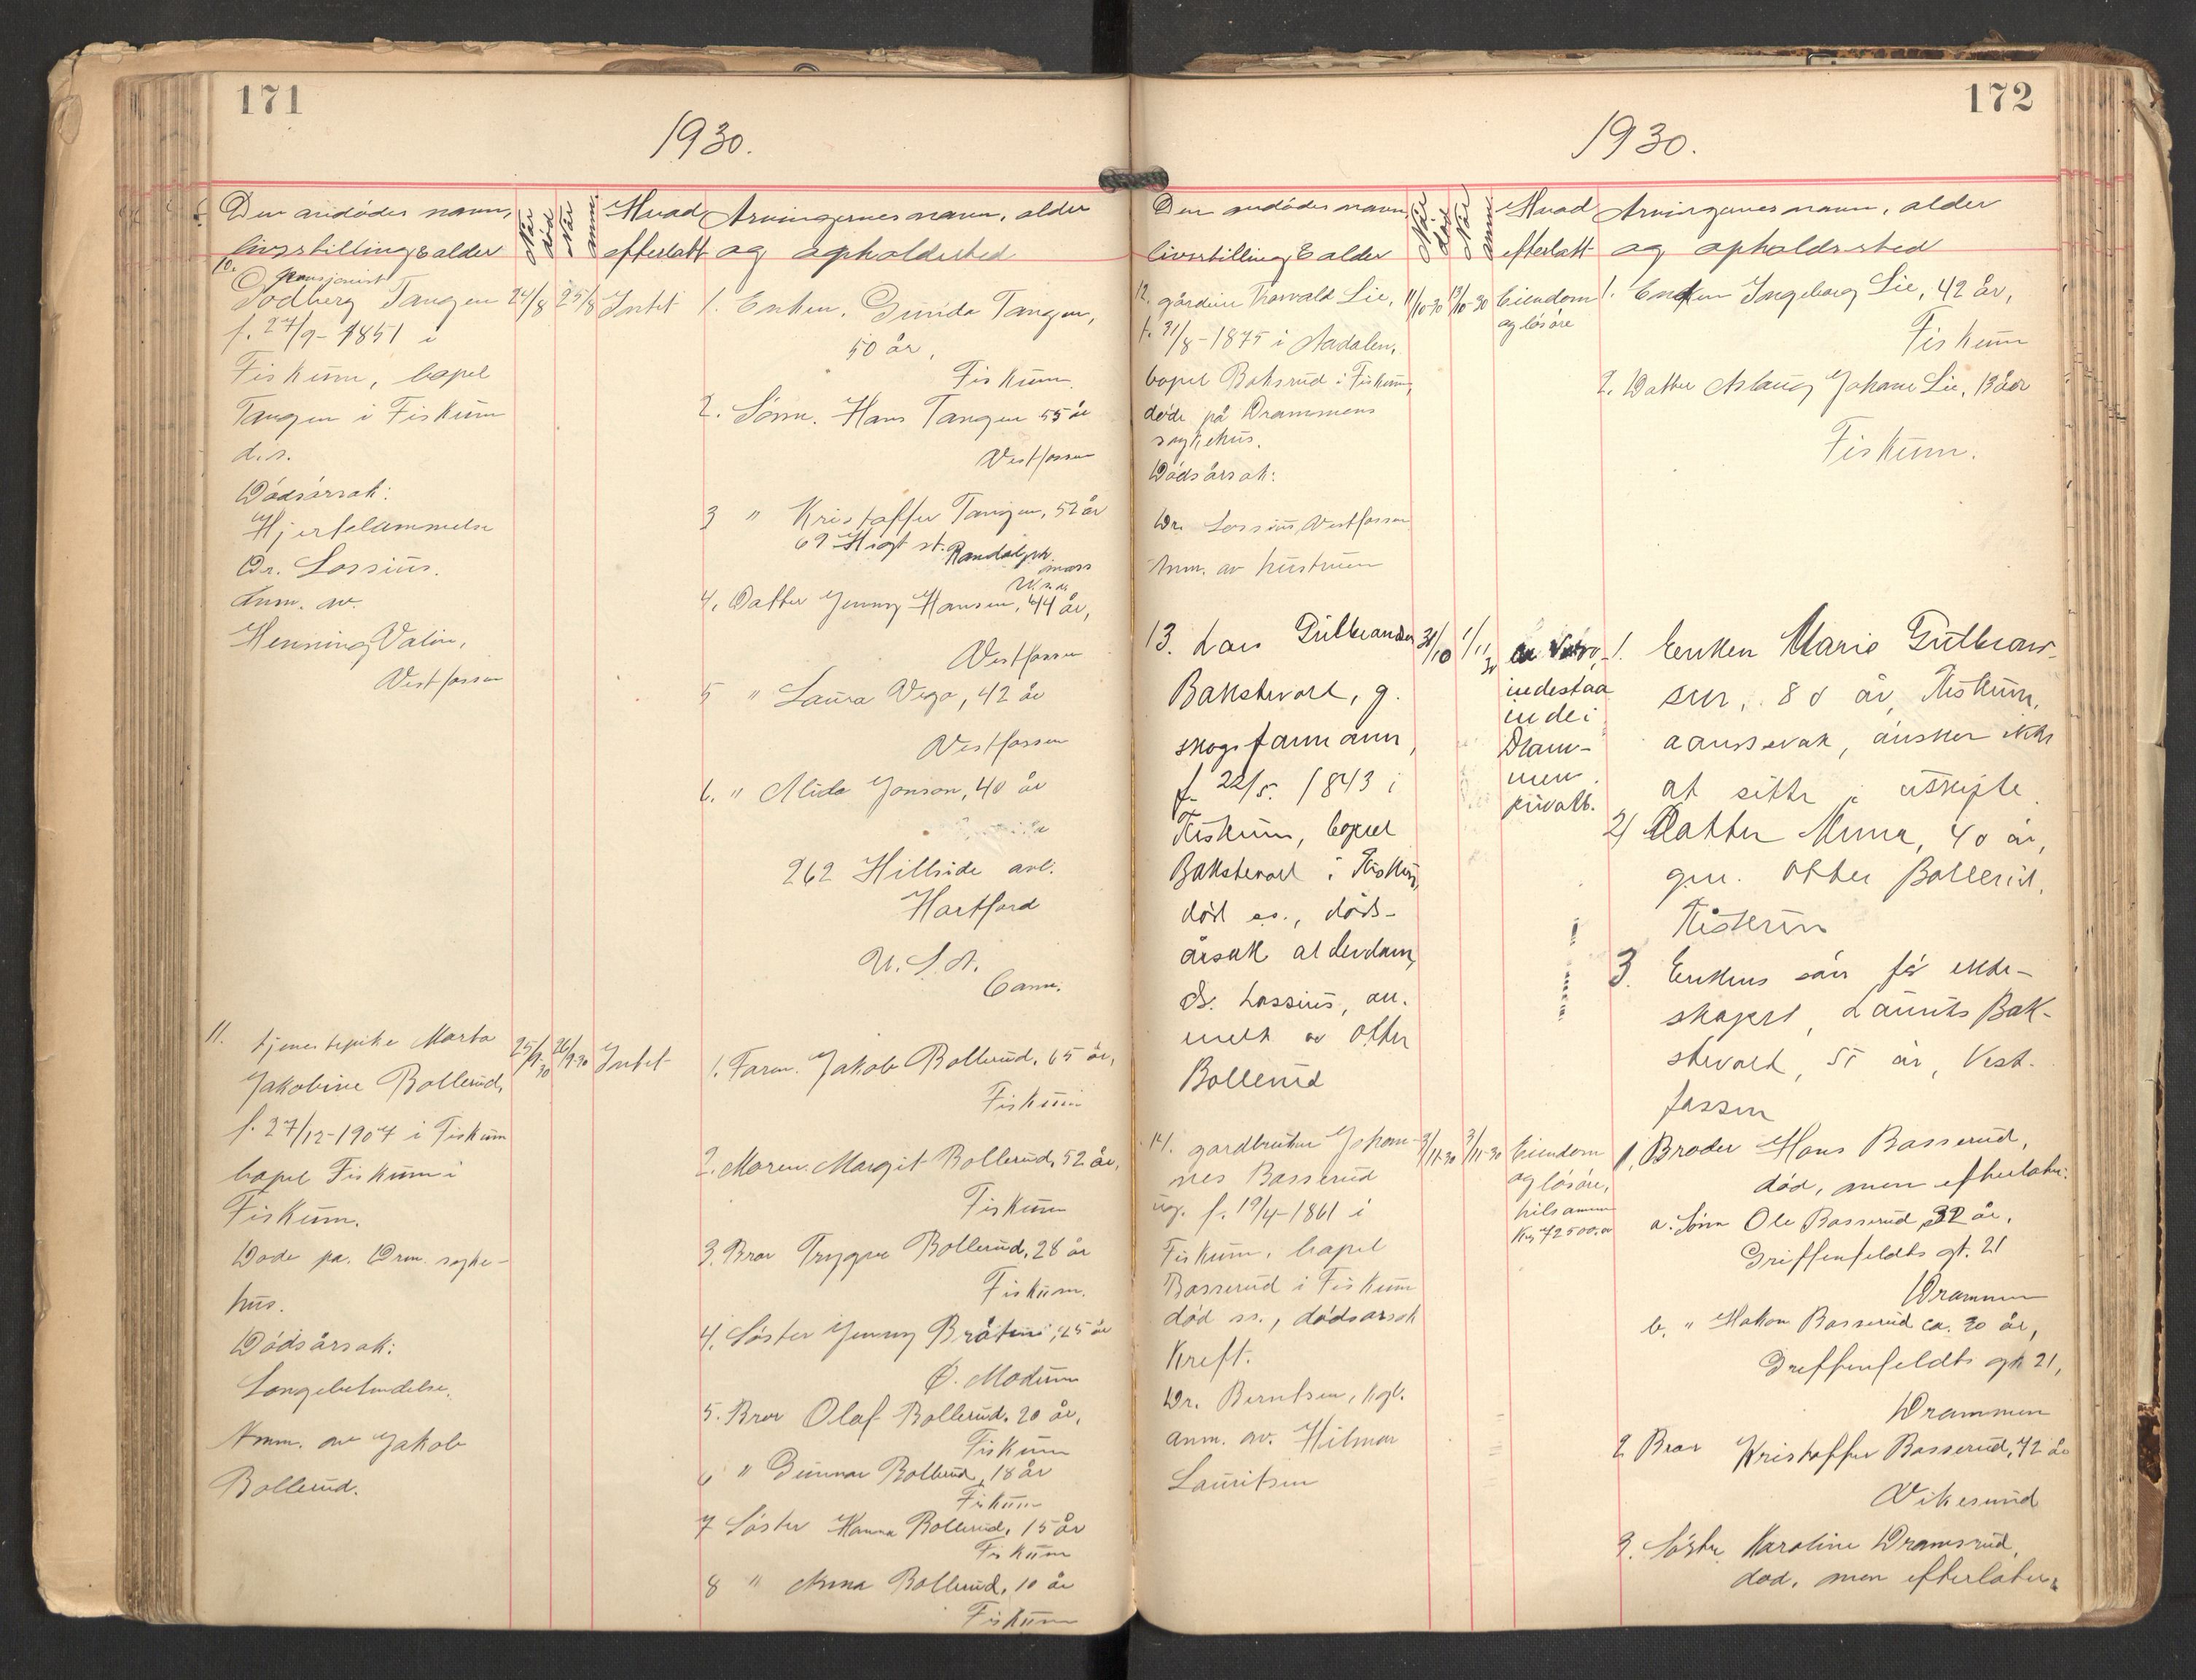 171
1930.
Den avdødes navn,
livsstilling & alder
Når
død
Når
anm.
Hvad
efterlatt
Arvingernes navn, alder
og opholdssted
10.
pensjonist
Tangen 24/8 25/8 Intet
f. 27/9-1851 i
Fiskum, bopel
Tangen i Fiskum
d.s.
Dødsårsak:
Hjertelammelse
Dr. Lossius.
Anm. av.
Henning Valin,
Vestfossen
1. Enken. Gunda Tangen,
50 år,
Fiskum.
2. Sønn. Hans Tangen 55 år
Vestfossen
3 " Kristoffer Tangen, 52 år
69 Higt st. Randolph
mass
U.s.a.
4. Datter Jenny Hansen, 44 år,
Vestfossen
5 " Laura Vego, 42 år
Vestfossen
6. " Alida Jonson, 40 år
262 Hillside ave.
Hartford
U.S.A.
Conn.
11. tjenestepike Marta 25/9-30 26/9-30 Intet
Jakobine Bollerud,
f. 27/12-1907 i Fiskum
bopel Fiskum i
Fiskum.
Døde på. Drm. syke-
hus.
Dødsårsak:
Lungebetendelse.
Anm. av Jakob
Bollerud.
1. Faren. Jakob Bollerud, 65 år,
Fiskum
2. Moren. Margit Bollerud, 52 år,
Fiskum
3. Bror Trygve Bollerud, 28 år
Fiskum.
4. Søster Jenny Bråten, 25 år
Ø. Modum
5. Bror Olaf Bollerud, 20 år,
Fiskum
6 " Gunnar Bollerud, 18 år
Fiskum
7 Søster Hanna Bollerud, 15 år
Fiskum
8 " Anna Bollerud, 10 år
Fiskum
172
1930.
Den avdødes navn
livsstilling & alder
Når
død
Når
anm.
Hvad
efterlatt
Arvingernes navn, alder
og opholdssted
12. gårdeier Thorvald Lie, 11/10-30 13/10-30 Eiendom
og løsøre
f. 31/8-1875 i Aadalen,
bopel Baksrud i Fiskum,
døde på Drammens
sykehus.
Dødsårsak:
Dr. Lossius, Vestfossen
Anm. av hustruen
1. Enken Ingeborg Lie, 42 år,
Fiskum
2. Datter Aslaug Johane Lie, 13 år
Fiskum.
13. Lars Gulbrandsen 31/10 1/11 30
Bakstevold, g.
skogsformann,
f. 22/5. 1843 i
Fiskum, bopel
Bakstevold i Fiskum,
død ss., døds-
årsak alderdom,
dr. Lossius, an.
meldt av Otter
Bollerud
indestaa
ende i
Dram-
men
privatb.
1. Enken Marie Gulbrand-
sen, 80 år, Fiskum,
aandssvak, ønsker ikke
at sitte i uskifte.
2) Datter Anna, 40 år,
gm. Otter Bollerud,
Fiskum
3. Enkens søn før ekte-
skapet, Laurits Bak-
stevold, 55 år, Vest-
fossen
14. gardbruker Johan- 3/11-30 3/11-30 Eiendom
nes Basserud
ug. f. 19/4-1861 i
Fiskum, bopel
Basserud i Fiskum
død ss., dødsårsak
Kreft.
Dr. Berntsen, Kgb.
anm. av. Hilmar
Lauritsen
og løsøre,
tilsammen
Kr. 72500,00
1. Broder Hans Basserud,
død, men efterlater:
a. Sønn Ole Basserud, 32 år,
Griffenfeldts gt. 21
Drammen
b. " Hakon Basserud ca. 30 år,
Greffenfeldts gt 21,
Drammen
2 Bror Kristoffer Basserud, 72 år
Vikesund
3. Søster Karoline Dramsrud,
død, men efterlater: